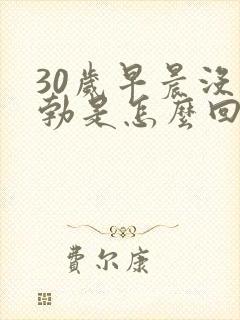 30歲早晨沒
勃是怎麼回
費尔康